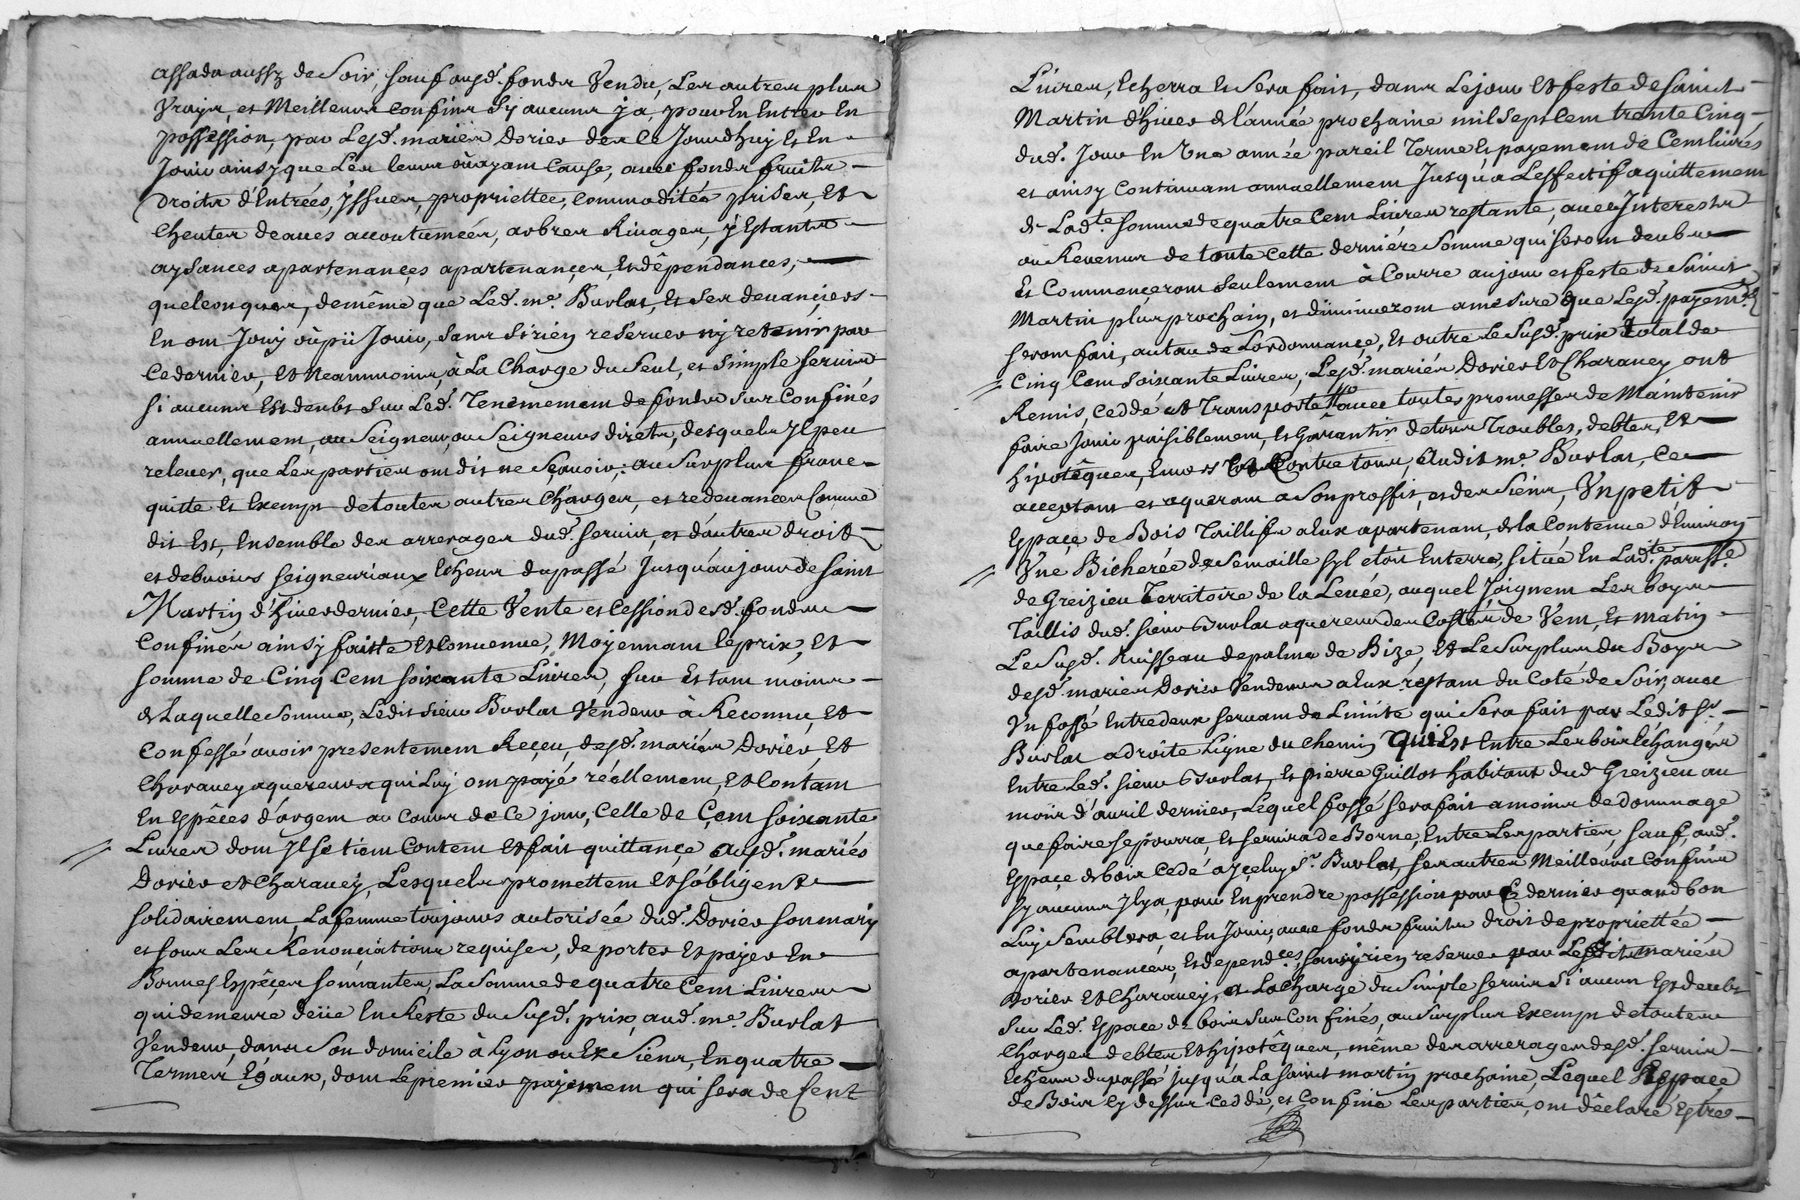 assada aussy de Soir, sauf ausd. fonds Vendu, Les autres plus
Vrays, et Meilleurs confins Sy aucuns ya, pour En Entrer En
possession, par Lesd. mariés Dorier des ce Jourdhuy Et En
Jouir ainsy que Les leurs où ayant Cause, avec fonds fruits
Droits d'Entrées, Yssues, propriettee, commodités prises, Et
cheutes deaues accoutumées, arbres Rivages, y Estants
aysances apartenançes apartenançes, Et dépendances,
quelconques, de même que Led. me. Burlat, Et Ses devançiers
En ont Jouÿ où pû Jouir, Sans Si rien reserver ny retenir par
Ce dernier, Et Neanmoins, à La Charge du Seul, et Simple Servis
Si aucuns Est deubt Sur Led. Tenemement de fonds Sus Confinés
annuellement, au Seigneur, ou Seigneurs diréts, desquels Il peu
relever, que Les parties ont dit ne Sçavoir; au Surplus franc
quitte Et Exempt de toutes autres Charges, et redevances Comme
dit Est, Ensemble des arrerages dud. Servis, et d'autres droits
et debvoirs Seigneuriaux Echeus du passé Jusqu'au jour de Saint
Martin d'hiver dernier, Cette Vente et Cession desd. fonds
Confinés ainsy faitte Et Convenue, Moyennant le prix, Et
Somme de Cinq Cent Soixante Livres, Sur Et tant moins
de Laquelle Somme, Ledit Sieur Burlat Vendeur à Reconnu, Et
Confessé avoir presentement Reçeu, desd. mariés Dorier, Et
Charavey aquereurs qui Luy ont payé réellement, Et Contant
En Espêces d'argent au Cours de Ce jour, Celle de Çent Soixante
Livres dont Il Se tient Content Et fait quittançe ausd. mariés
Dorier et Charavey, Lesquels promettent Et s'obligent
Solidairement, La femme toujours autorisée dud. Dorier Son mary
et Sous Les Renonçiations requises, de porter Et payer En
Bonnes Espêçes Sonnantes, La Somme de quatre Cent Livres
qui demeure deüe En Reste du Susd. prix, aud. me. Burlat
Vendeur, dans Son domicile à Lyon ou Ex Siens, En quatre
Termes Egaux, dont Le premier payement qui Sera de Cent
Livres, Echerra Et Sera fait, dans Le jour Et feste de Sainct
Martin d'hiver de l'année prochaine mil Sept Cent trente Cinq
dud. Jour En Une année pareil Terme Et payement de Cent livres
et ainsy Continuant annuellement Jusqu'a L'effectif aquittement
de Lad.te Somme de quatre Cent Livres restante, avec Interests
ou Revenus de toute Cette dernière Somme qui Seront deubs
Et Commençeront Seulement à Courre au jour et feste de Sainct
Martin plus prochain, et diminueront a mesure que Lesd. payemts.
Seront fait, au taux de L'ordonnance, Et outre Le Susd. prix total de
Cinq Cent Soixante Livres, Lesd. mariés Dorier Et Charavey ont
Remis, Ceddé et Transporté avec toutes promesses de Maintenir
faire Jouir paisiblement, Et garantir de tous Troubles, debtes, Et
hipotêques, Envers Et Contre tous, Audit me. Burlat, Ce
acceptant et requerant a Son proffit, et des Siens, Un petit
Espaçe de Bois Taillifs a Eux apartenant, de la Contenue d'Environ
Une Bicherée de Semaille Syl etoit En terre, Situé En Ladite. parsse.
de Greizieu Territoire de la Levée, auquel Joignent Les boys
Taillis dud. Sieur Burlat aquereur des Costés de Vent, Et matin
Le Susd. Ruisseau de palma de Bize, Et Le Surplus du Boys
desd. mariés Dorier Vendeurs a Eux restant du Coté de Soir, avec
Un fossé Entre deux Servant de Limite qui Sera fait par Ledit Sr.
Burlat a droite Ligne du Chemin qui Est Entre Les bois Echangés
Entre Led. Sieur Burlat, Et pierre Guillot habitant dud Greizieu au
mois d'avril dernier, Lequel fossé Sera fait a moins de dommage
que faire Se pourra, Et Servira de Borne, Entre Les parties, Sauf, aud.
Espaçe de bois Cedé a Yçeluy Sr. Burlat, Ses autres Meilleurs Confins
Sy aucuns Il ya, pour En prendre possession par Ce dernier quand bon
Luy Semblera, et En Jouir, avec fonds fruits droit de propriettée
apartenances, Et dependces. Sans y rien reserver par Lesdits mariés
Dorier Et Charavey, à La Charge du Simple Servis Si aucun Est deubt
Sur Led. Espace de bois Sus Confinés, au Surplus Exempt de toutes
Charges debtes Et hipotêques, même des arrerages desd. Servis
Echeus du passé jusqu'a La Sainct martin prochaine, Lequel Espaçe
de Bois Cy dessus Ceddé, et Confiné Les parties, ont déclaré Estre